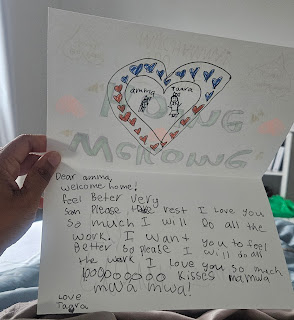 amma Taara
Dear amma,
welcome home!
Feel Beter very
Soon Please rest I love you
So much I will Do all the
work. I want you to feel
Better So please I will do all
the work I love you so much
Kisses mamwa
mwa mwa!
Love
Taara